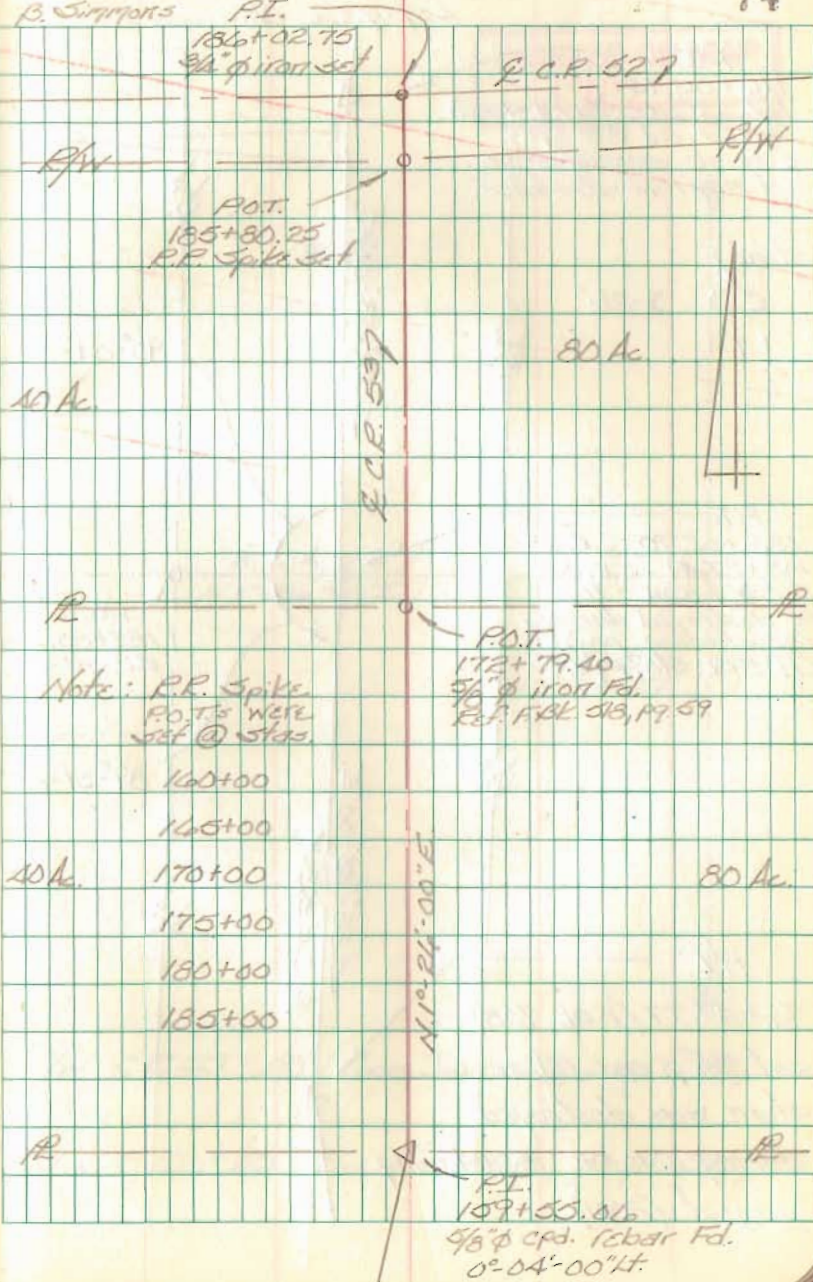 B. Simmons
P.I.
186+02.75
3/4"⌀ iron set
℄ C.R. 527
R/W
R/W
P.O.T.
185+80.25
R.R. Spike set
80 Ac.
40 Ac.
℄ C.R. 537
PL
PL
P.O.T.
172+79.40
5/8"⌀ iron Fd.
Ref. F.BK. 518, Pg. 59
Note: R.R. Spike
P.O.T.s were
set @ stas.
160+00
165+00
40 Ac.
170+00
80 Ac.
175+00
180+00
185+00
PL
PL
P.I.
159+55.06
5/8"⌀ cpd. rebar Fd.
0°-04'-00" Lt.